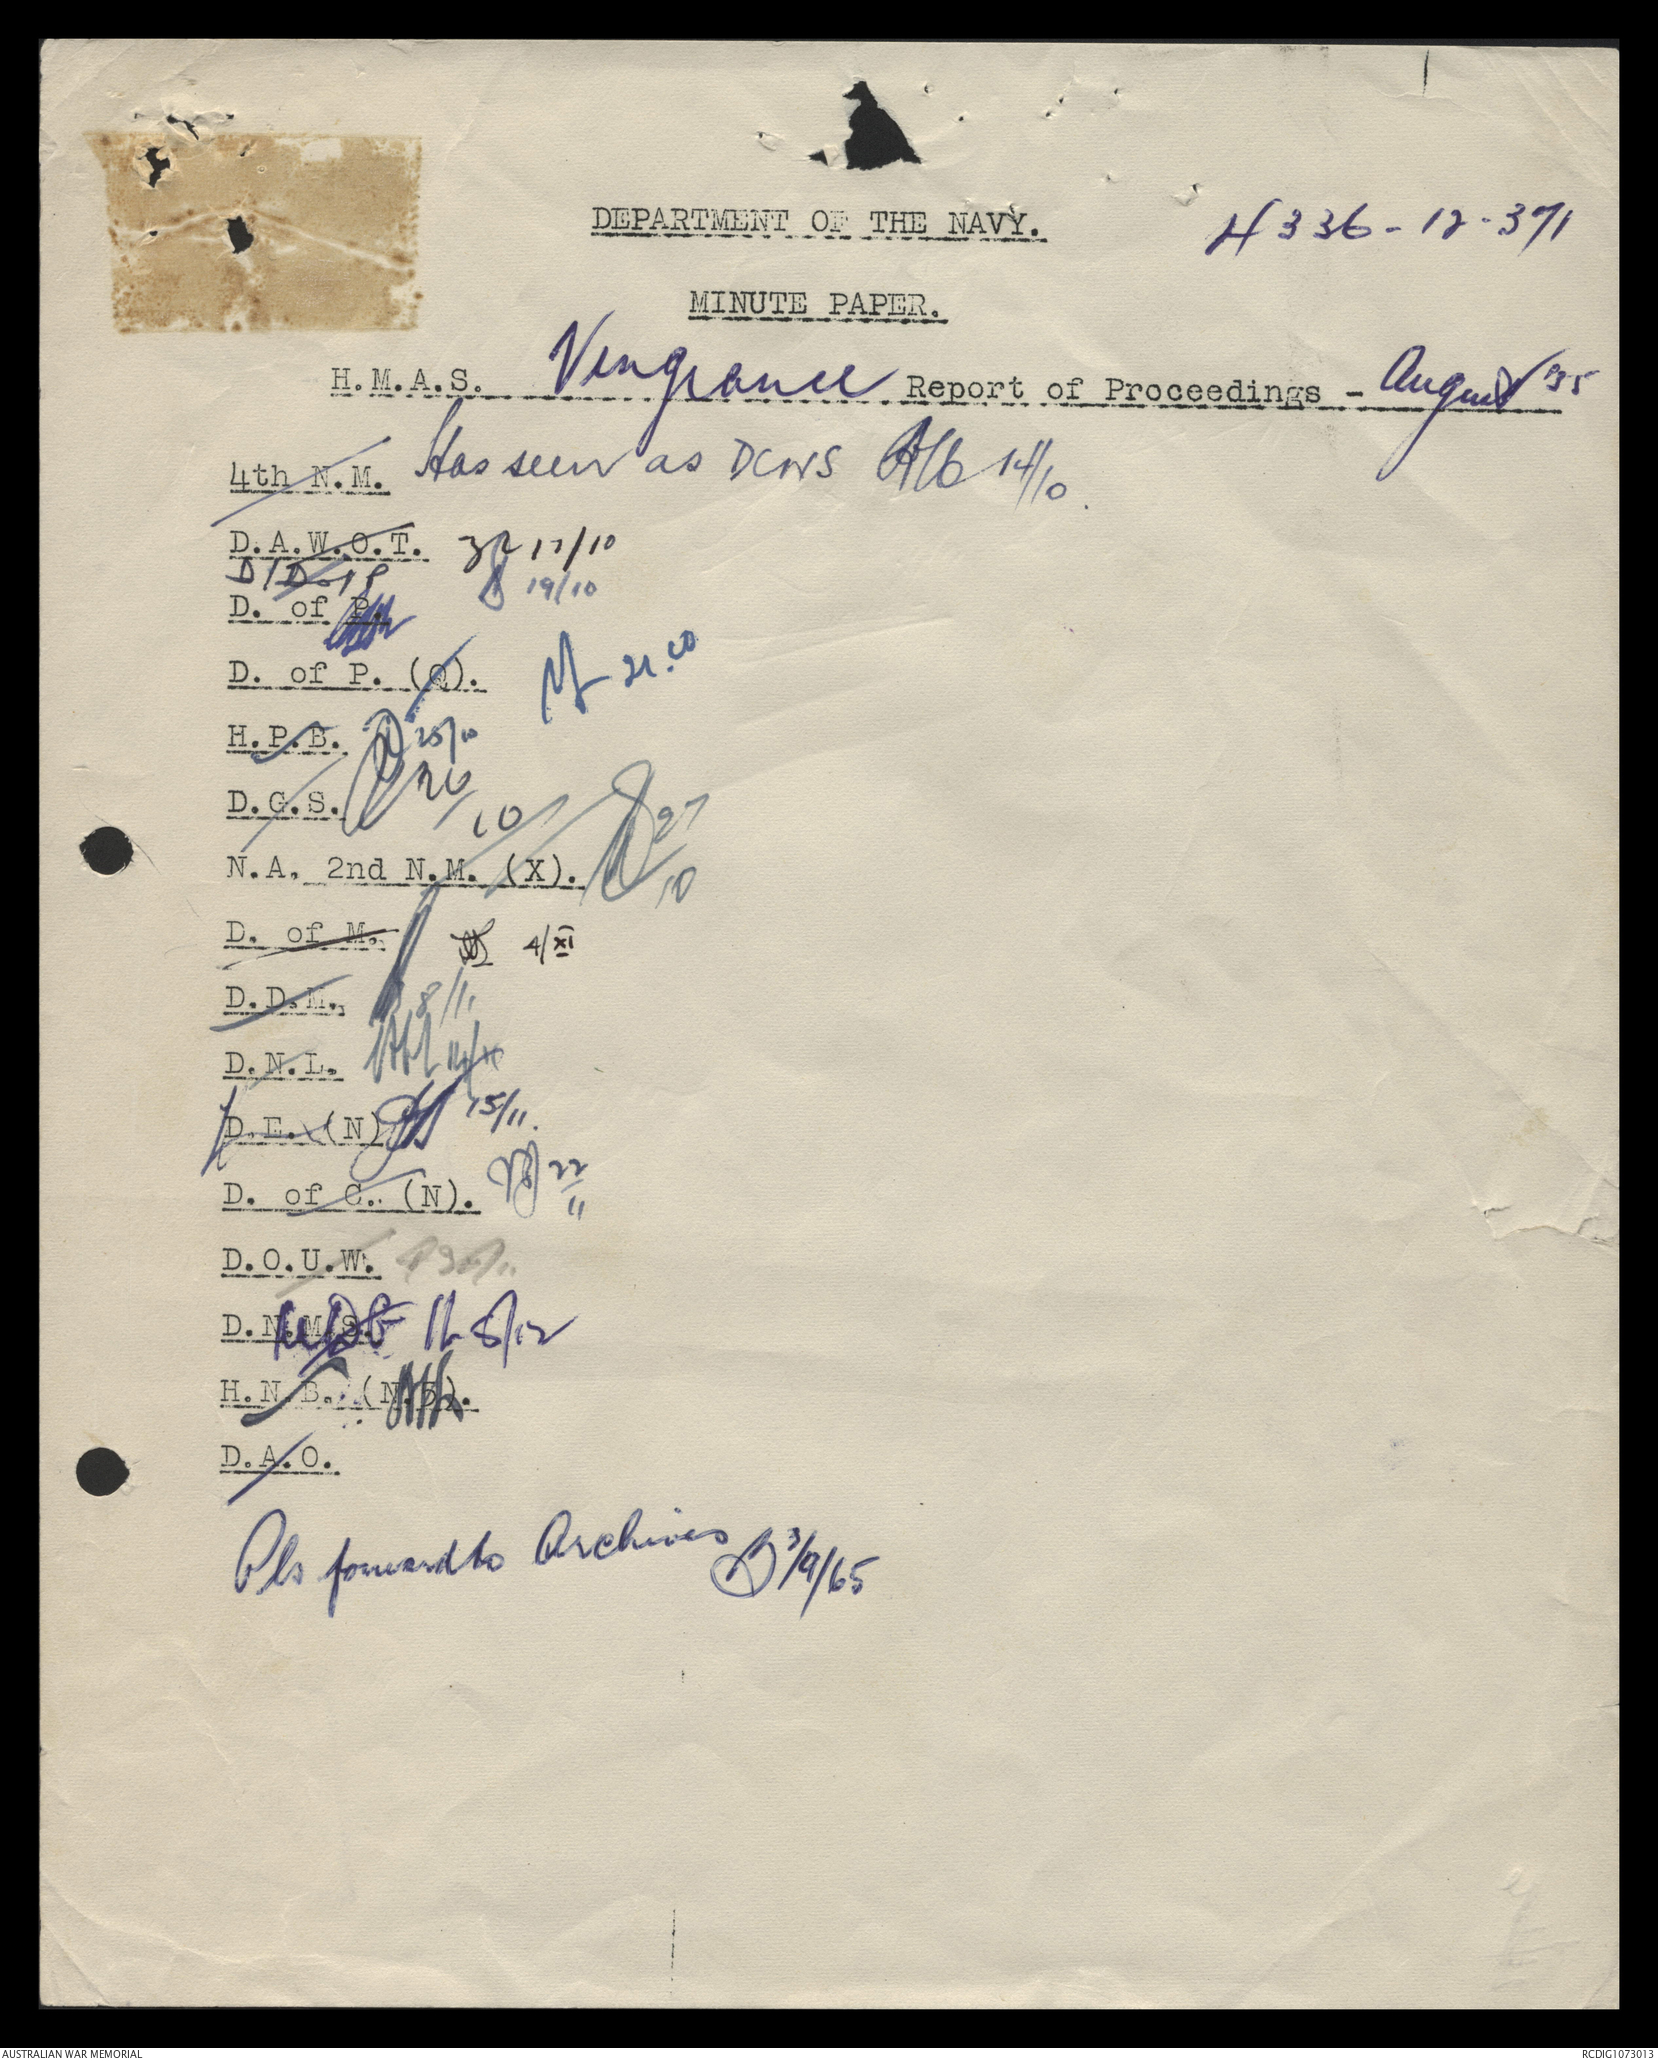 DEPARTMENT OF THE NAVY.
4336-12-371
MINUTE PAPER.
H.M.A.S. Vengeance Report of Proceedings - August '55
4th N.M. Has seen as DCNS 14/10.
D.A.W.O.T. 17/10
19/10
D. of P.
D. of P. (Q). 21.10
H.P.B. 25/10
D.G.S. 26/10
N.A. 2nd N.M. (X). 27/10
D. of M. 4/XI
D.D.M. 8/11
D.N.L.
D.E. (N) 15/11.
D. of C. (N). 22/11
D.O.U.W.
D.N.M.S. 8/12
H.N.B. (N.S).
D.A.O.
Pls forward to Archives 3/9/65
AUSTRALIAN WAR MEMORIAL
RCDIG1073013